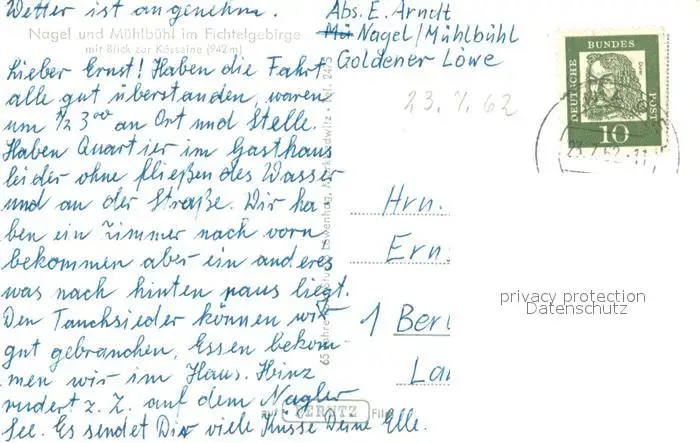 Wetter ist angenehm.
Nagel und Mühlbühl im Fichtelgebirge
mit Blick zur Kösseine (942m)
Lieber Ernst! Haben die Fahrt
alle gut überstanden, waren
um 1/2 3°° an Ort und Stelle.
Haben Quartier im Gasthaus
leider ohne fließendes Wasser
und an der Straße. Wir ha
ben ein Zimmer nach vorn
bekommen aber ein anderes
was nach hinten raus liegt.
Den Tauchsieder können wir
gut gebrauchen, Essen bekom-
men wir im Haus. Heinz
rudert z. Z. auf dem Nagler
See. Es sendet Dir viele Küsse Deine Elle.
Abs. E. Arndt
Nagel/Mühlbühl
Goldener Löwe
23.7.62
DEUTSCHE BUNDES POST
10
23.7.62-11
Hrn.
Ern
1 Ber
La
privacy protection
Datenschutz